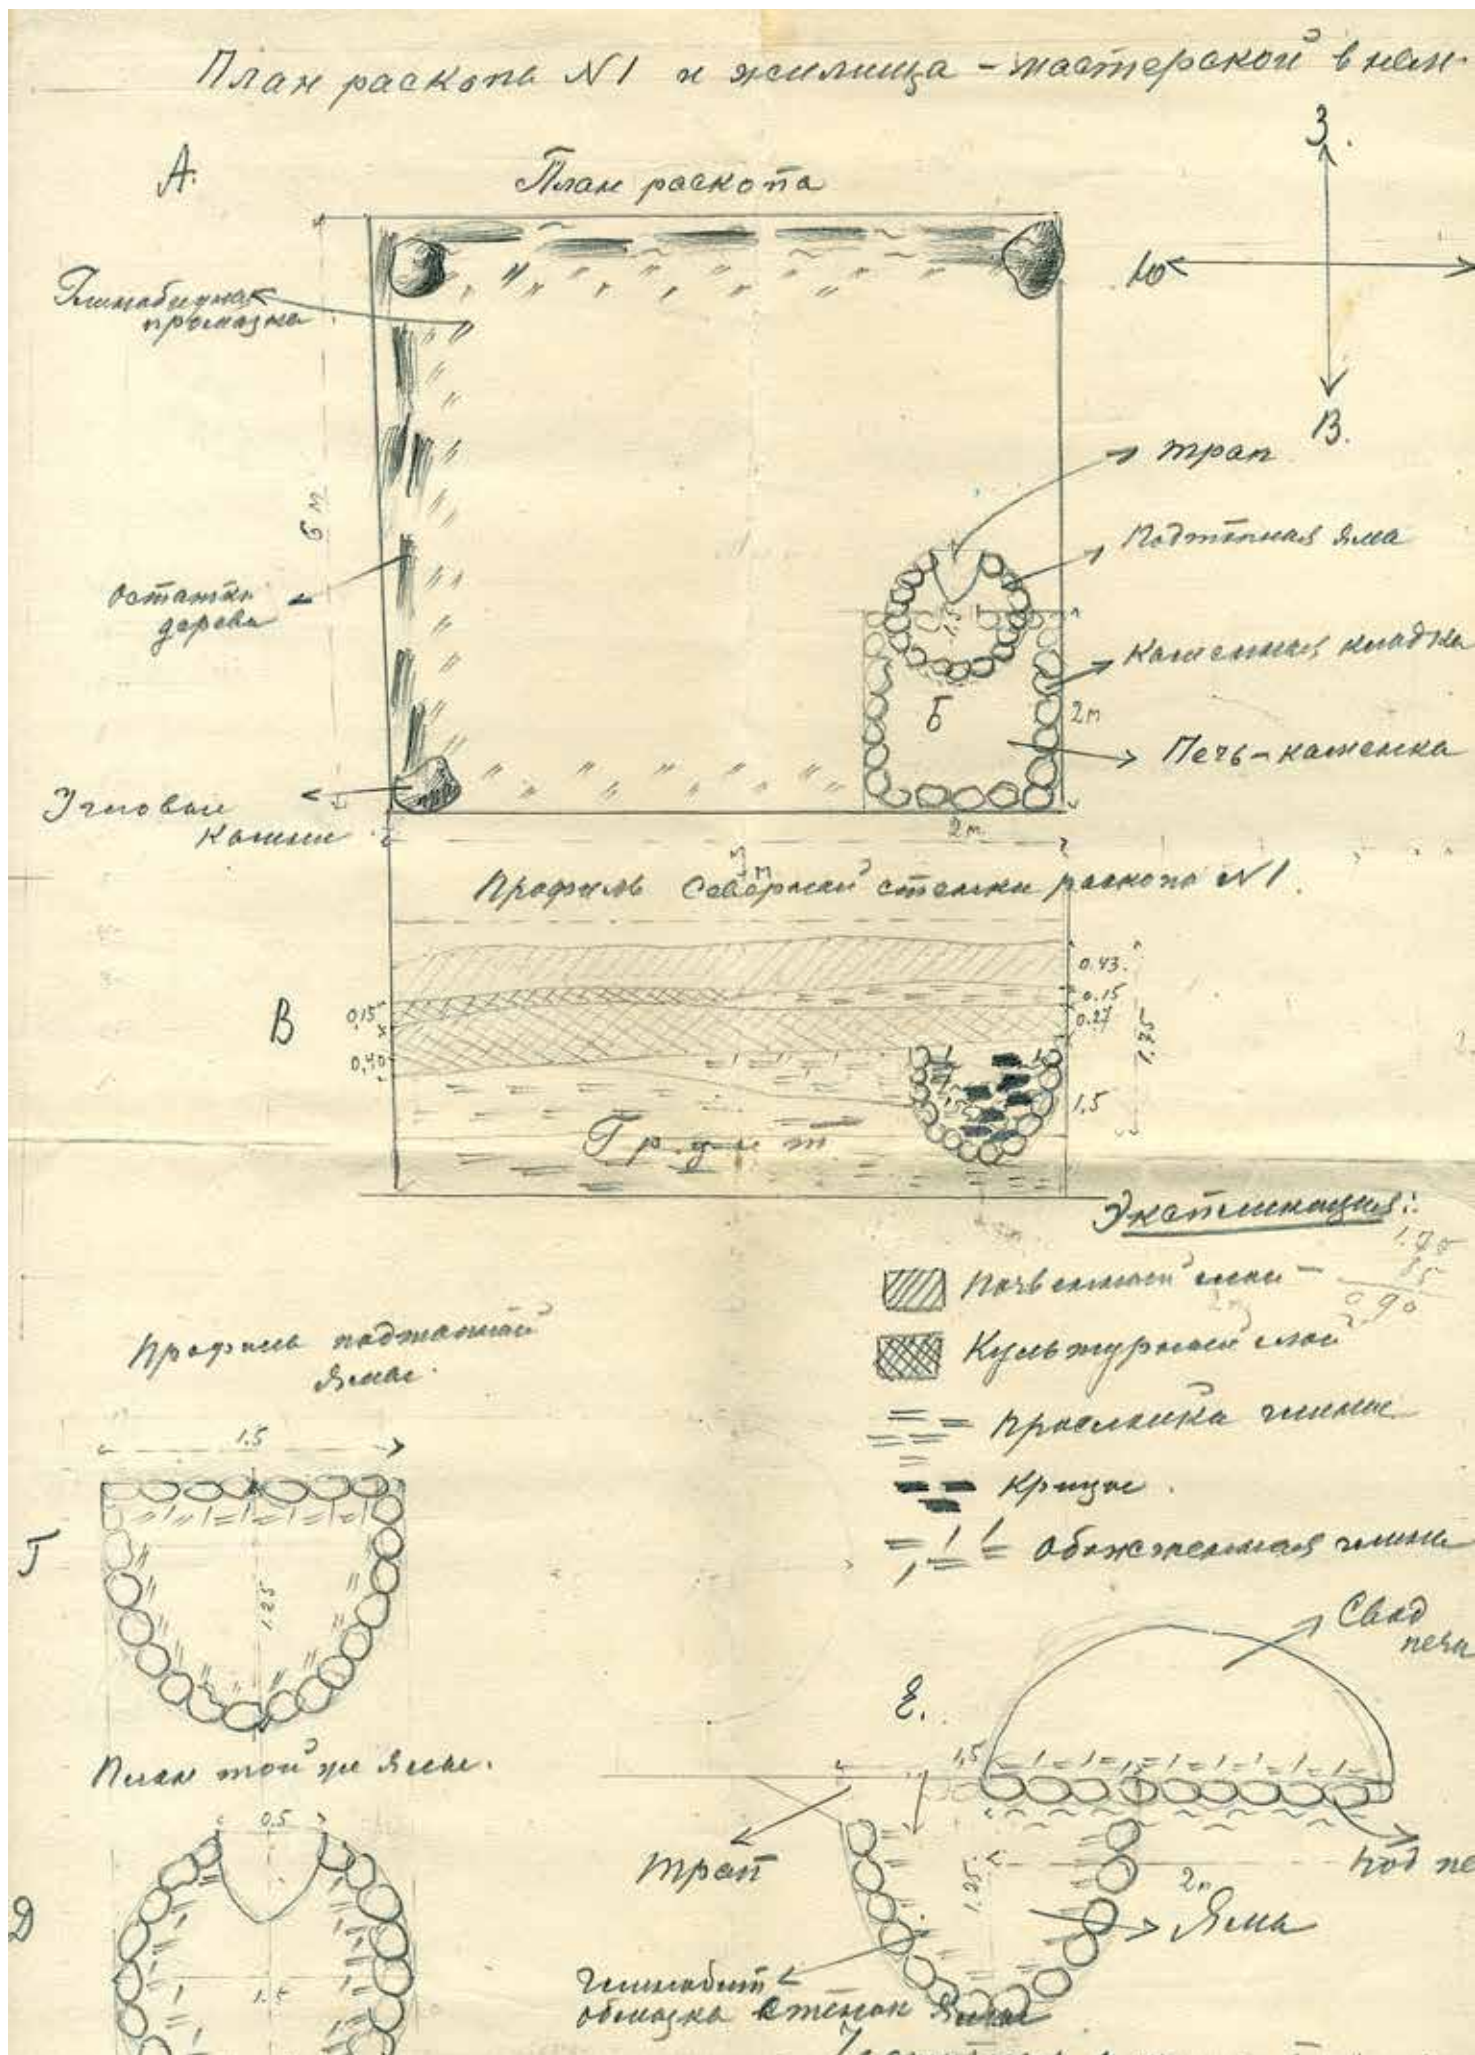 План раскопа №1 и жилища-мастерской в нем.
А.
План раскопа
З.
Ю
В.
Глинобитная
промазка
6 м
трап
Подтопная яма
остатки
дерева
1.5
Каменная кладка
Б
2м
Печь-каменка
Угловые
камни
2м
7 м
Профиль Северной стенки раскопа №1.
В
0.43.
0.15
0.15
0.27
0,40
1.75
1.5
Грунт
Экспликация:
1.75
85
0.90
Почвенный слой -
Культурный слой
Прослойка глины
Крицы.
Обожженная глина
Профиль подтопной
Ямы.
1.5
Г
1.25
План той же Ямы.
0,5
Д
1.5
Свод
печи
Е.
1,5
трап
1.25
2м
Под пе
Яма
глинобит
обмазка стенок Ямы